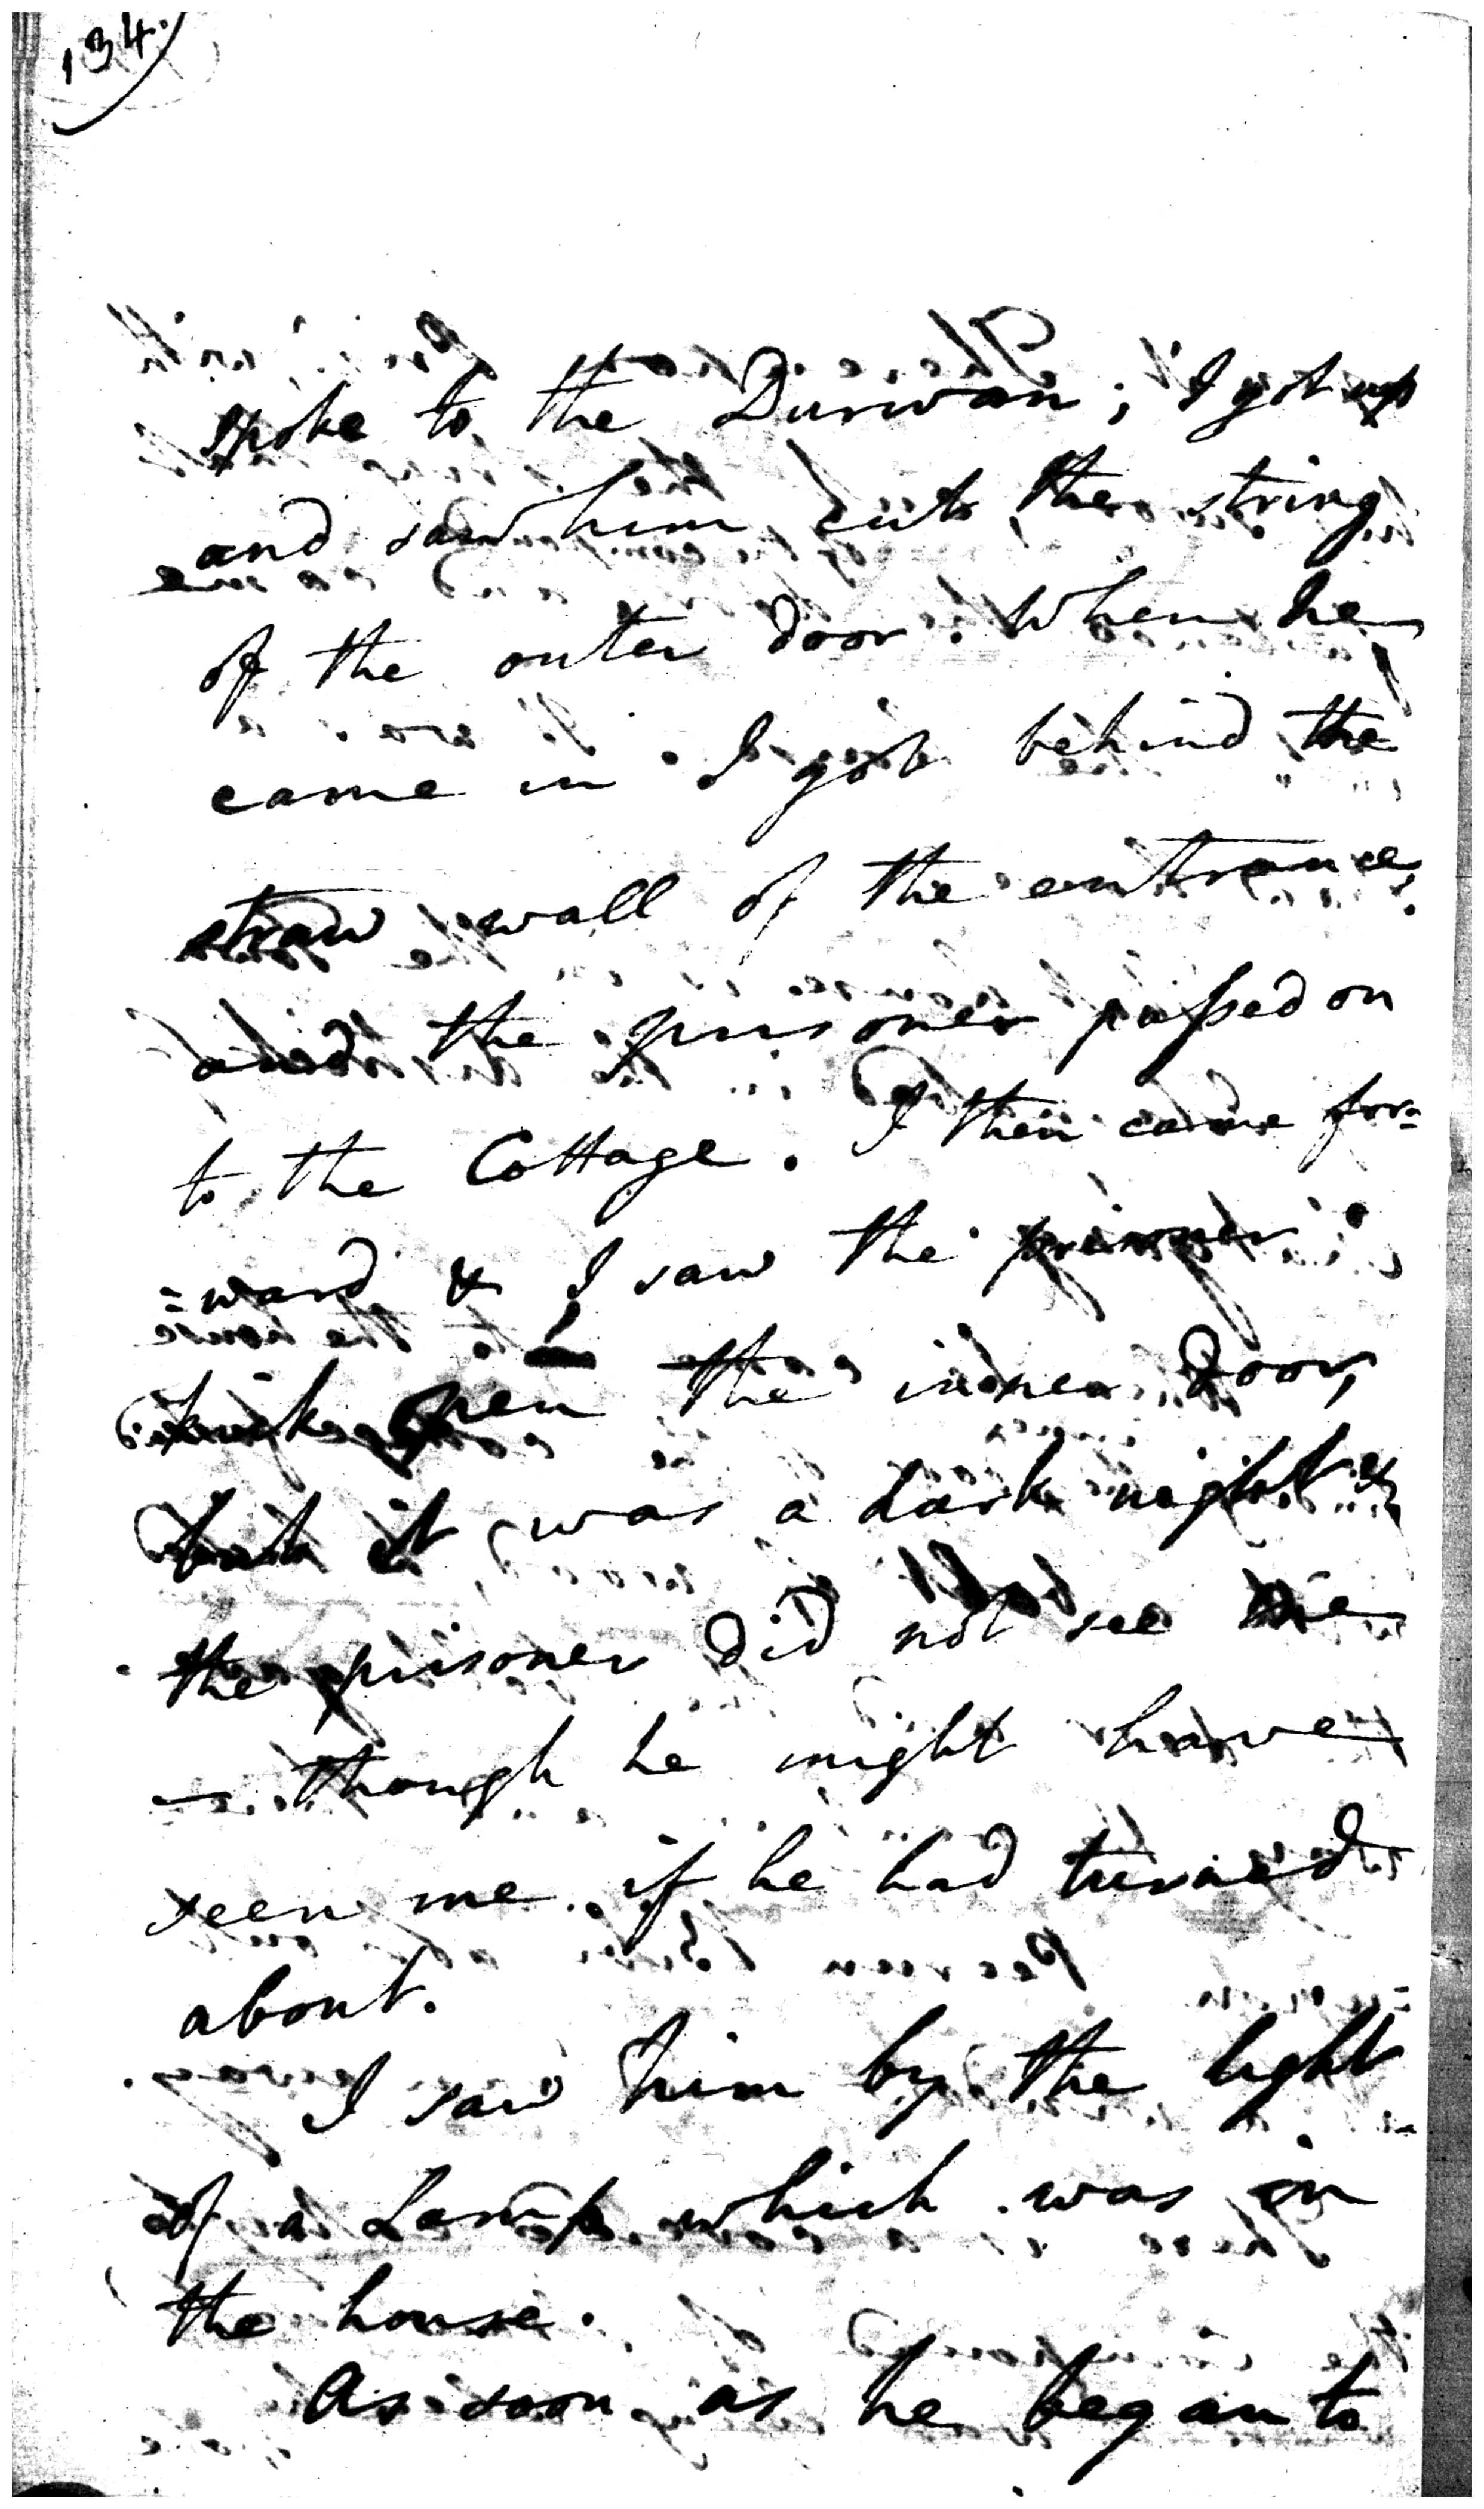 134.
spoke to the Durwan; I got up
and saw him cut the string
of the outer door. When he
came in I got behind the
straw wall of the entrance
and the prisoner passed on
to the Cottage. I then came for=
=ward & I saw the prisoner
kick open the inner Door,
but it was a dark night &
the prisoner did not see me
— though he might have
seen me if he had turned
about.
I saw him by the light
of a Lamp which was in
the house.
As soon as he began to